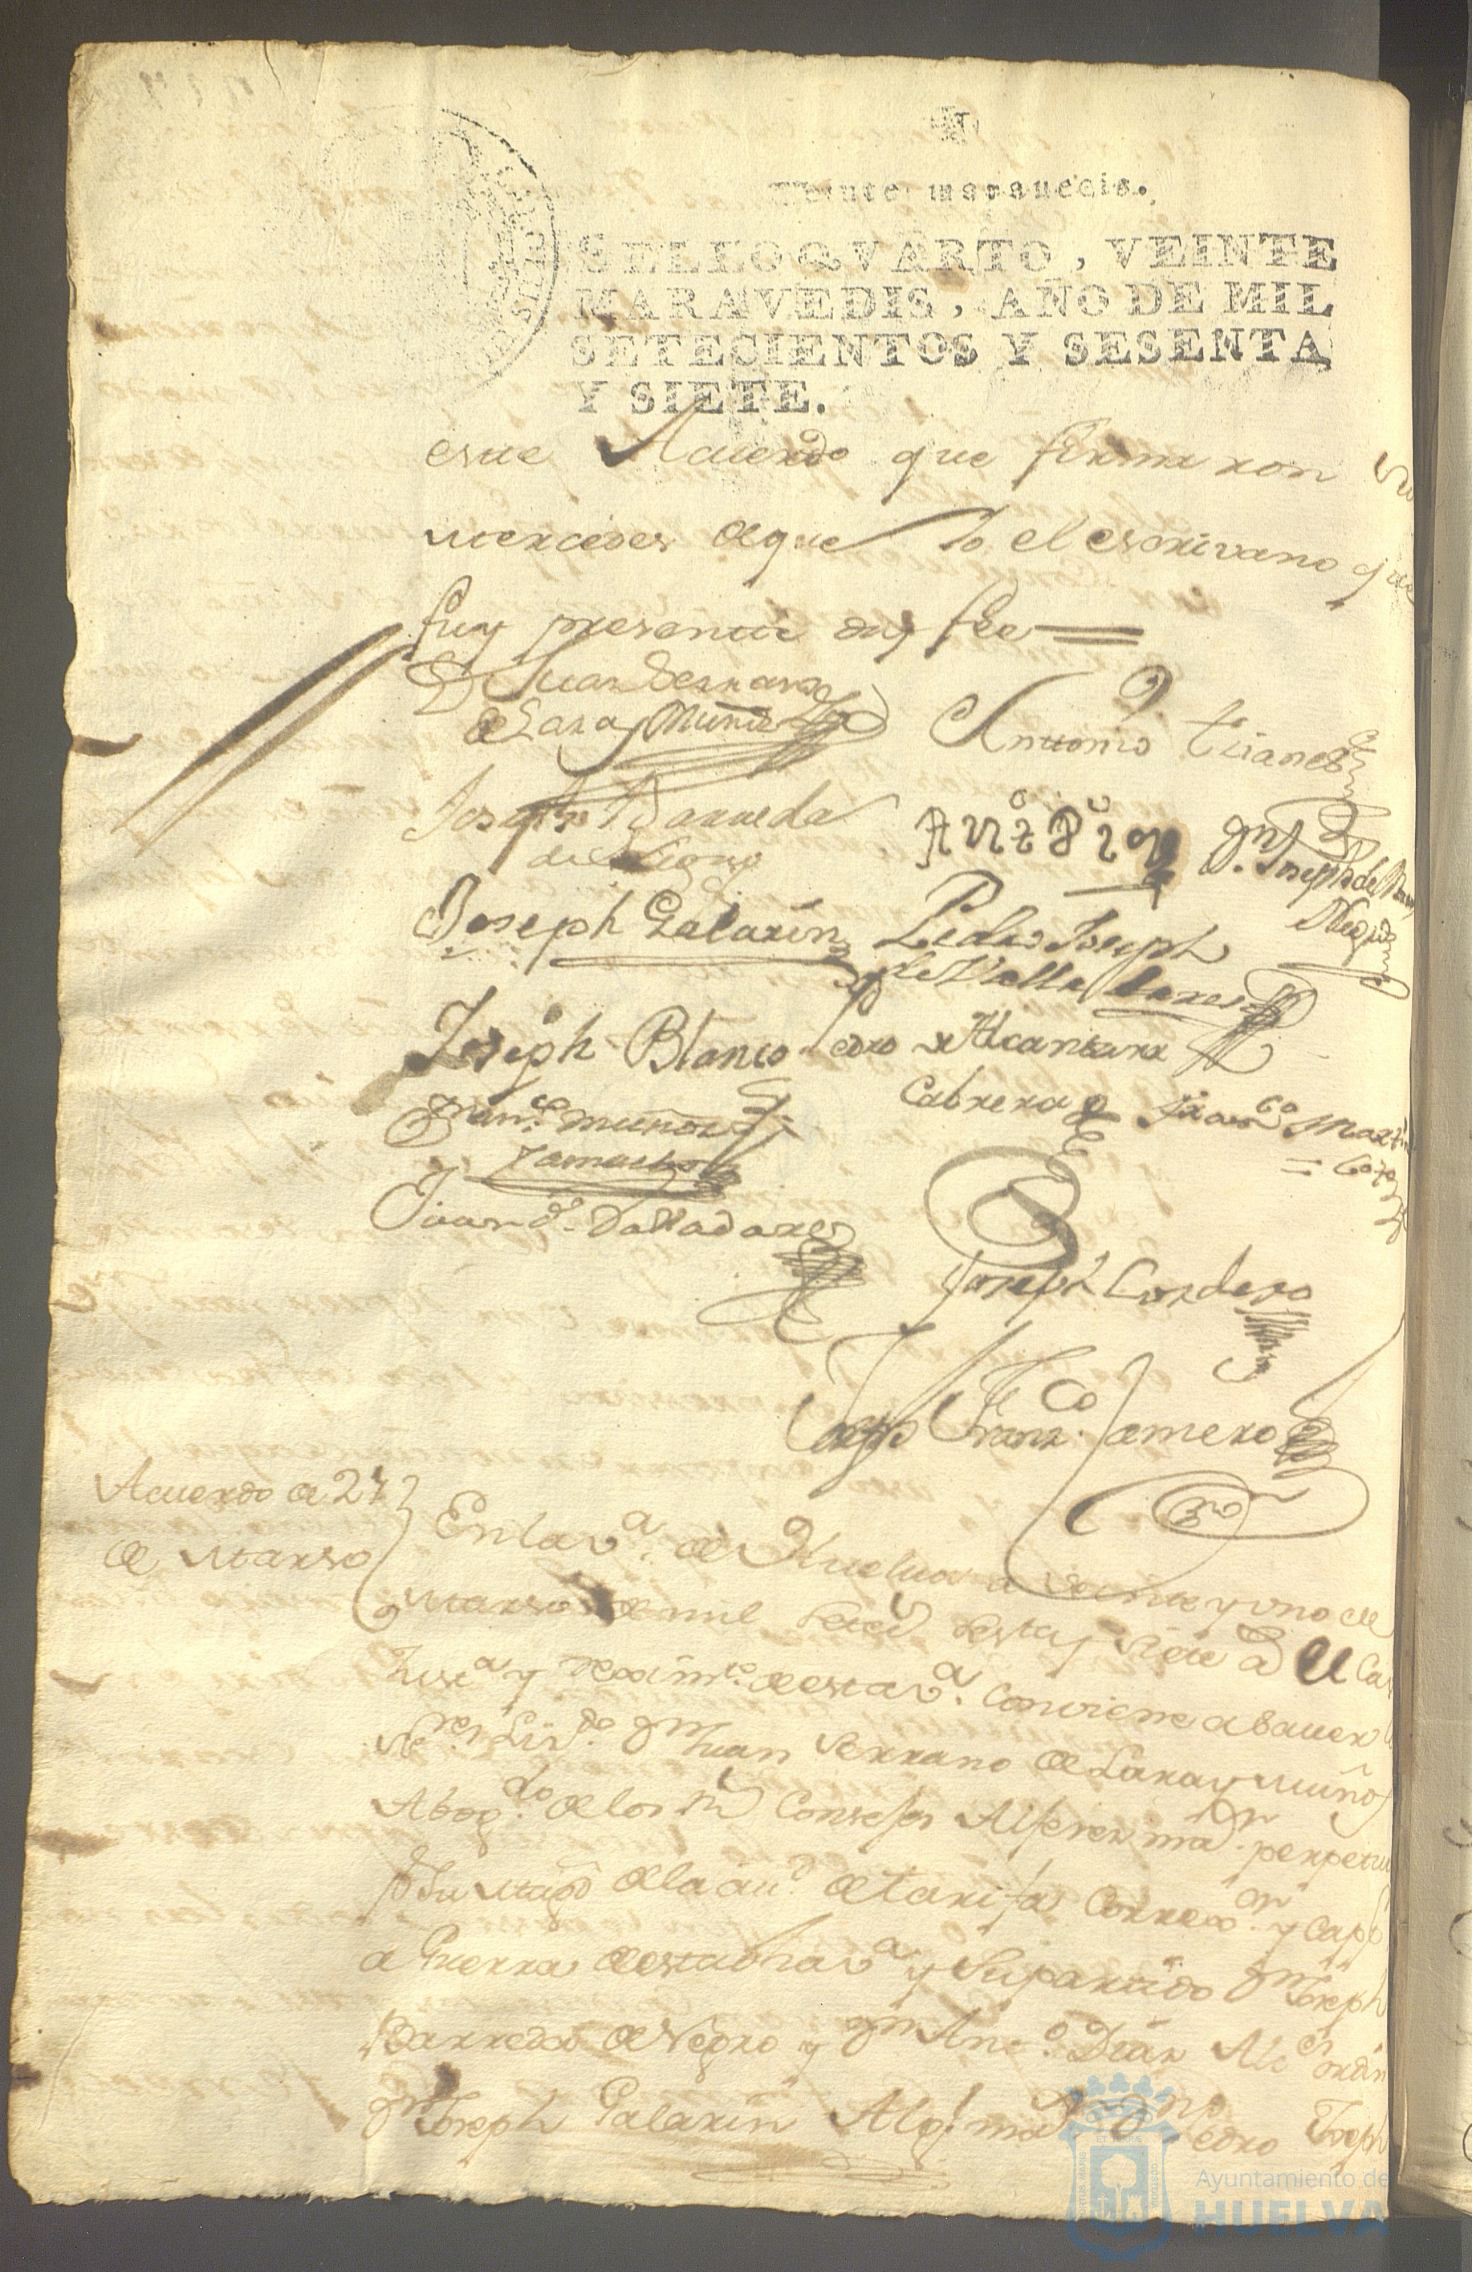 Veinte maravedis.
SELLO QVARTO, VEINTE
MARAVEDIS, AÑO DE MIL
SETECIENTOS Y SESENTA
Y SIETE.
este Acuerdo que firmaron
mercedes deque Io el escrivano que
fuy presente doy fee
Juan Serrano
de Lara y Muñoz
Antonio
Joseph Barreda
Joseph Galarin
Pedro Joseph
de Valladares
Joseph Blanco
Pedro de Alcantara
Cabrera
Franco Martin
Franco Muñoz
Camacho
Juan de Valladares
Joseph Cordero
Joseph Franco Jamero
Acuerdo de 21
de Marso
En la va. de Huelva a veinte y uno de
Marso de mil setecs sesta y siete a
Justa y reximto. de esta va. conviene a saver
Lizdo. Dn Juan Serrano de Lara y Muñoz
Abogdo de los Rs Consejos Alferez maor perpetuo
de la ciud de Tarifa Corredor y Capn
a Guerra de esta dha va y su partido Dn Joseph
Barreda de Negro y Dn Anto. Diaz Alces ordin
Dn Joseph Galarin Algl maor Pedro Joseph
Ayuntamiento de
HUELVA